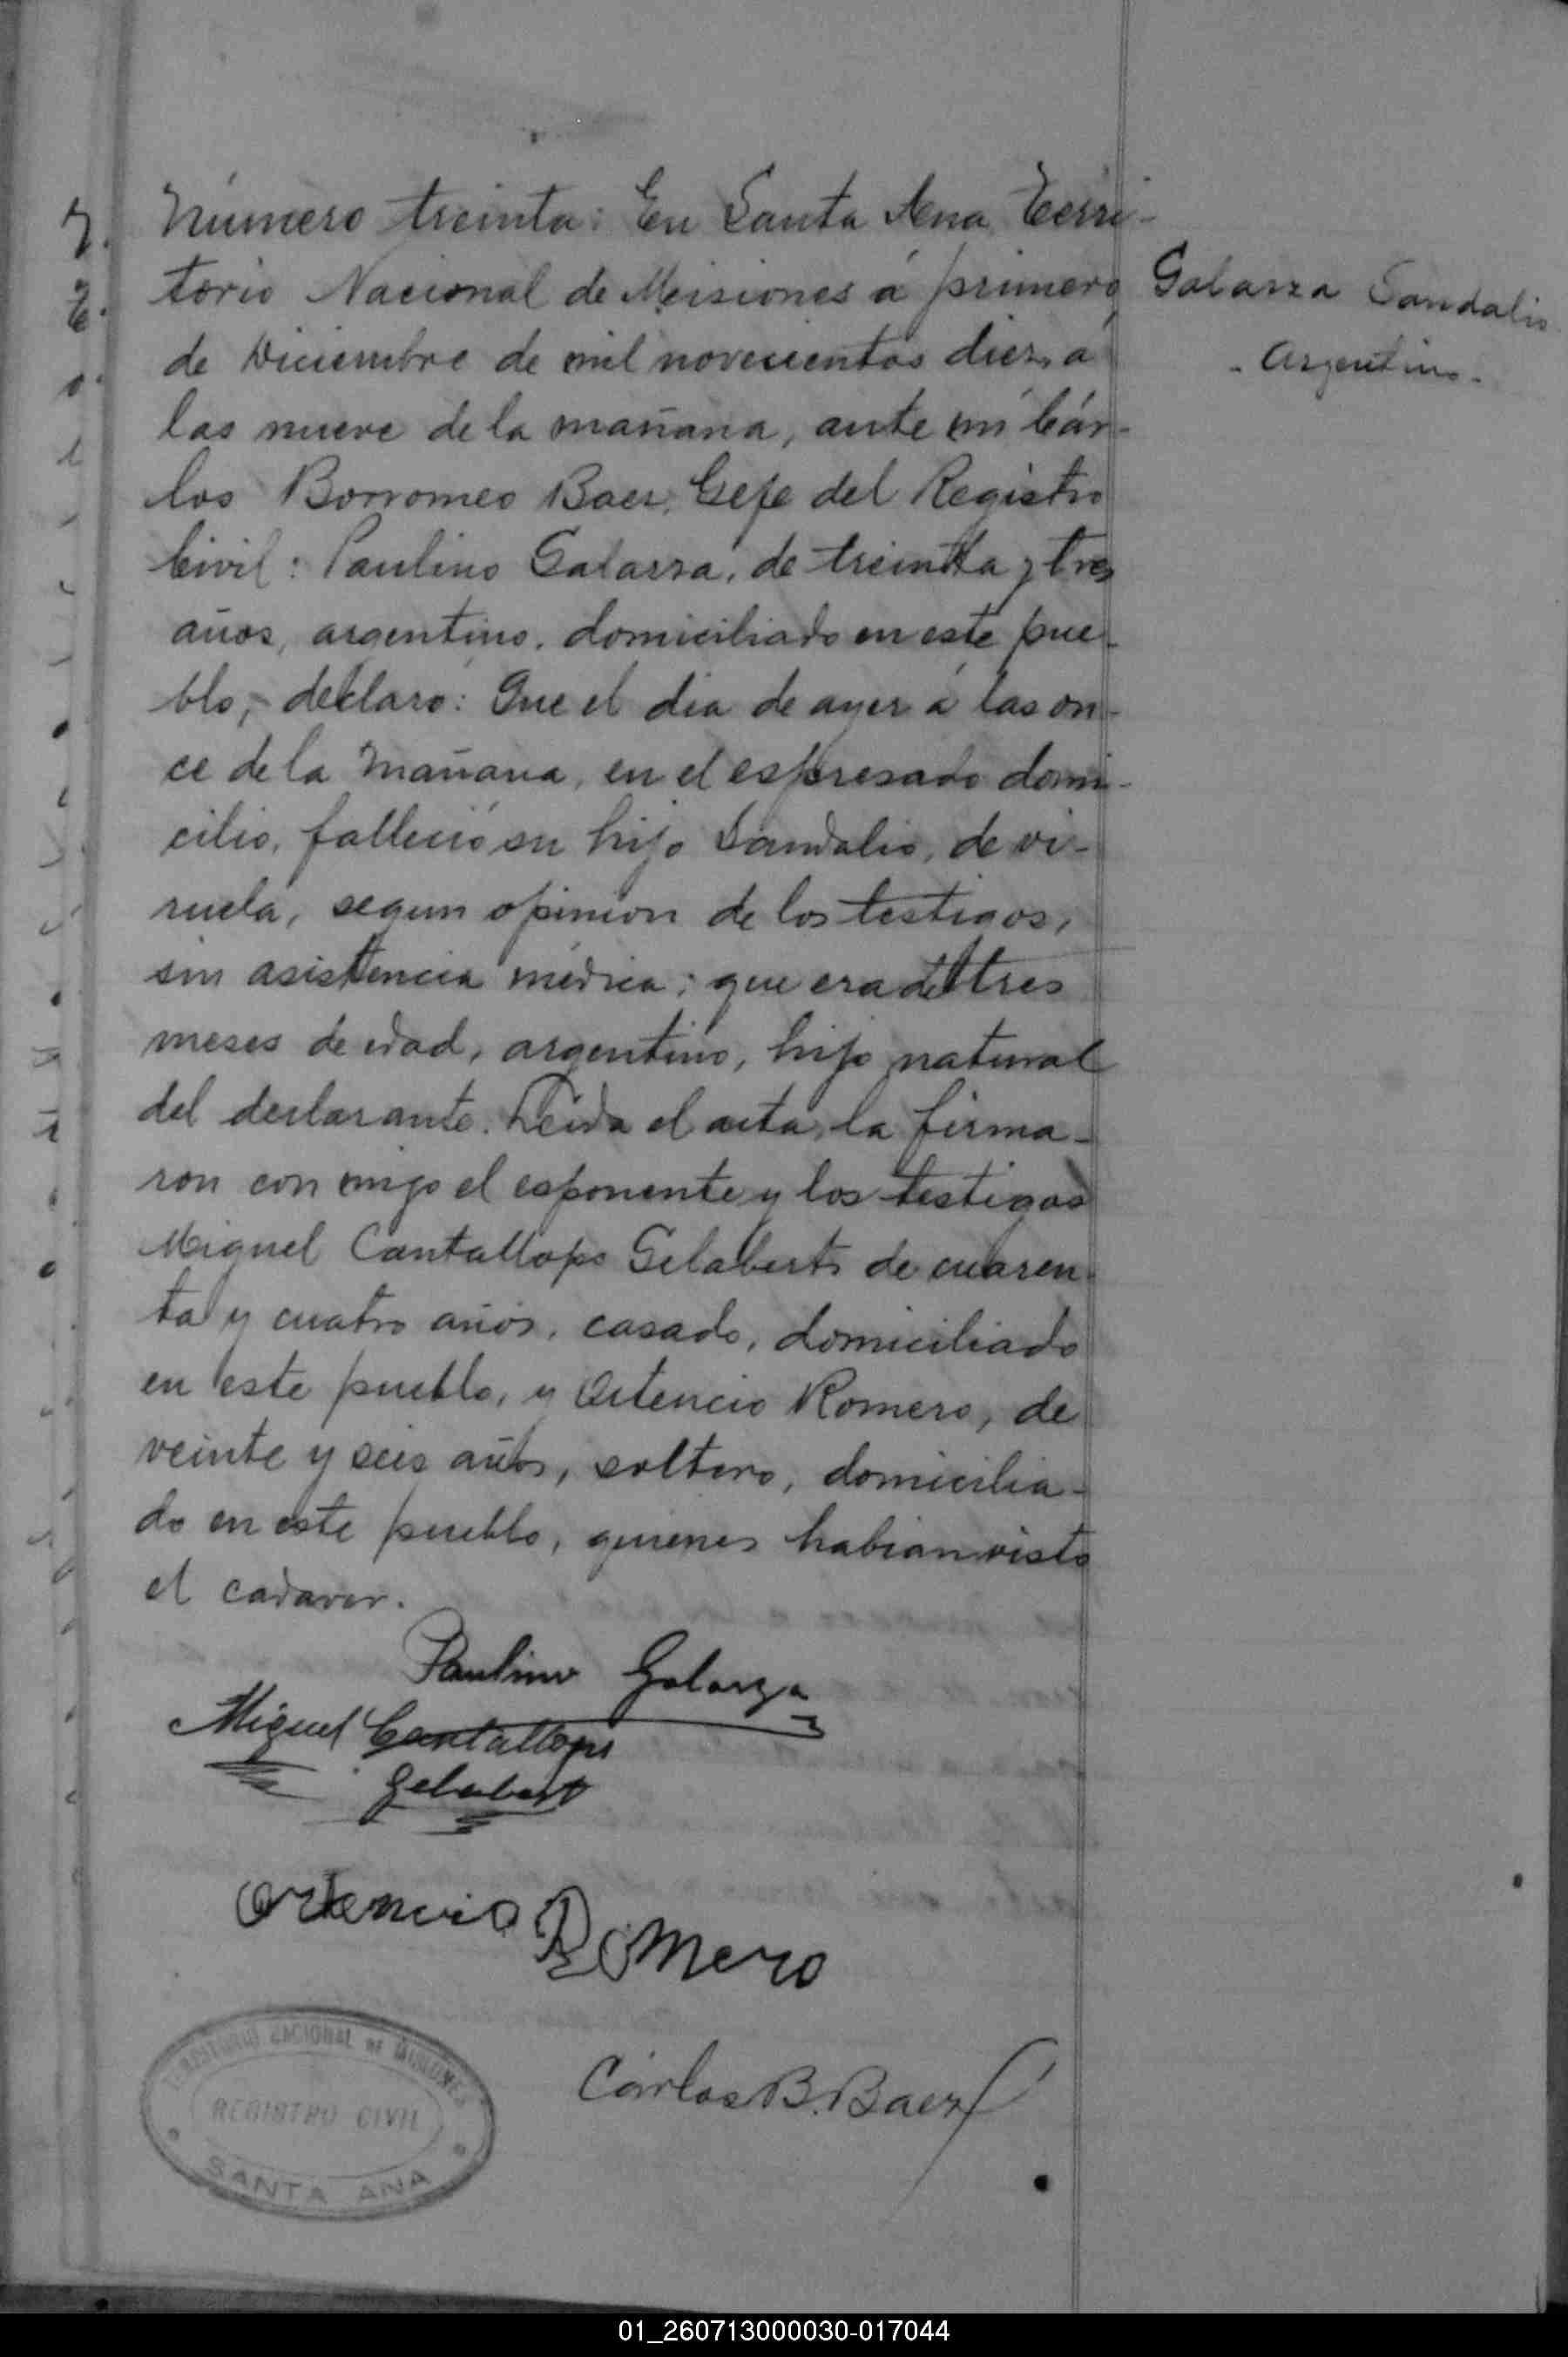 Número treinta: En Santa Ana, Terri-
torio Nacional de Misiones á primero
de Diciembre de mil novecientos diez, a
las nueve de la mañana, ante mí Cár-
los Borromeo Baez, Gefe del Registro
Civil: Paulino Galarza, de treinta y tres
años, argentino, domiciliado en este pue-
blo, declaró: Que el dia de ayer á las on-
ce de la mañana, en el espresado domi-
cilio, falleció su hijo Sandalio, de vi-
ruela, segun opinion de los testigos,
sin asistencia médica; que era de tres
meses de edad, argentino, hijo natural
del declarante. Leida el acta, la firma-
ron conmigo el esponente y los testigos
Miguel Cantallops Gelabert, de cuaren-
ta y cuatro años, casado, domiciliado
en este pueblo, y Ortencio Romero, de
veinte y seis años, soltero, domicilia-
do en este pueblo, quienes habian visto
el cadaver.
Galarza Sandalio
- Argentino -
Paulino Galarza
Miguel Cantallops
Gelabert
Ortencio Romero
Cárlos B. Baez
TERRITORIO NACIONAL DE MISIONES
REGISTRO CIVIL
SANTA ANA
01_260713000030-017044